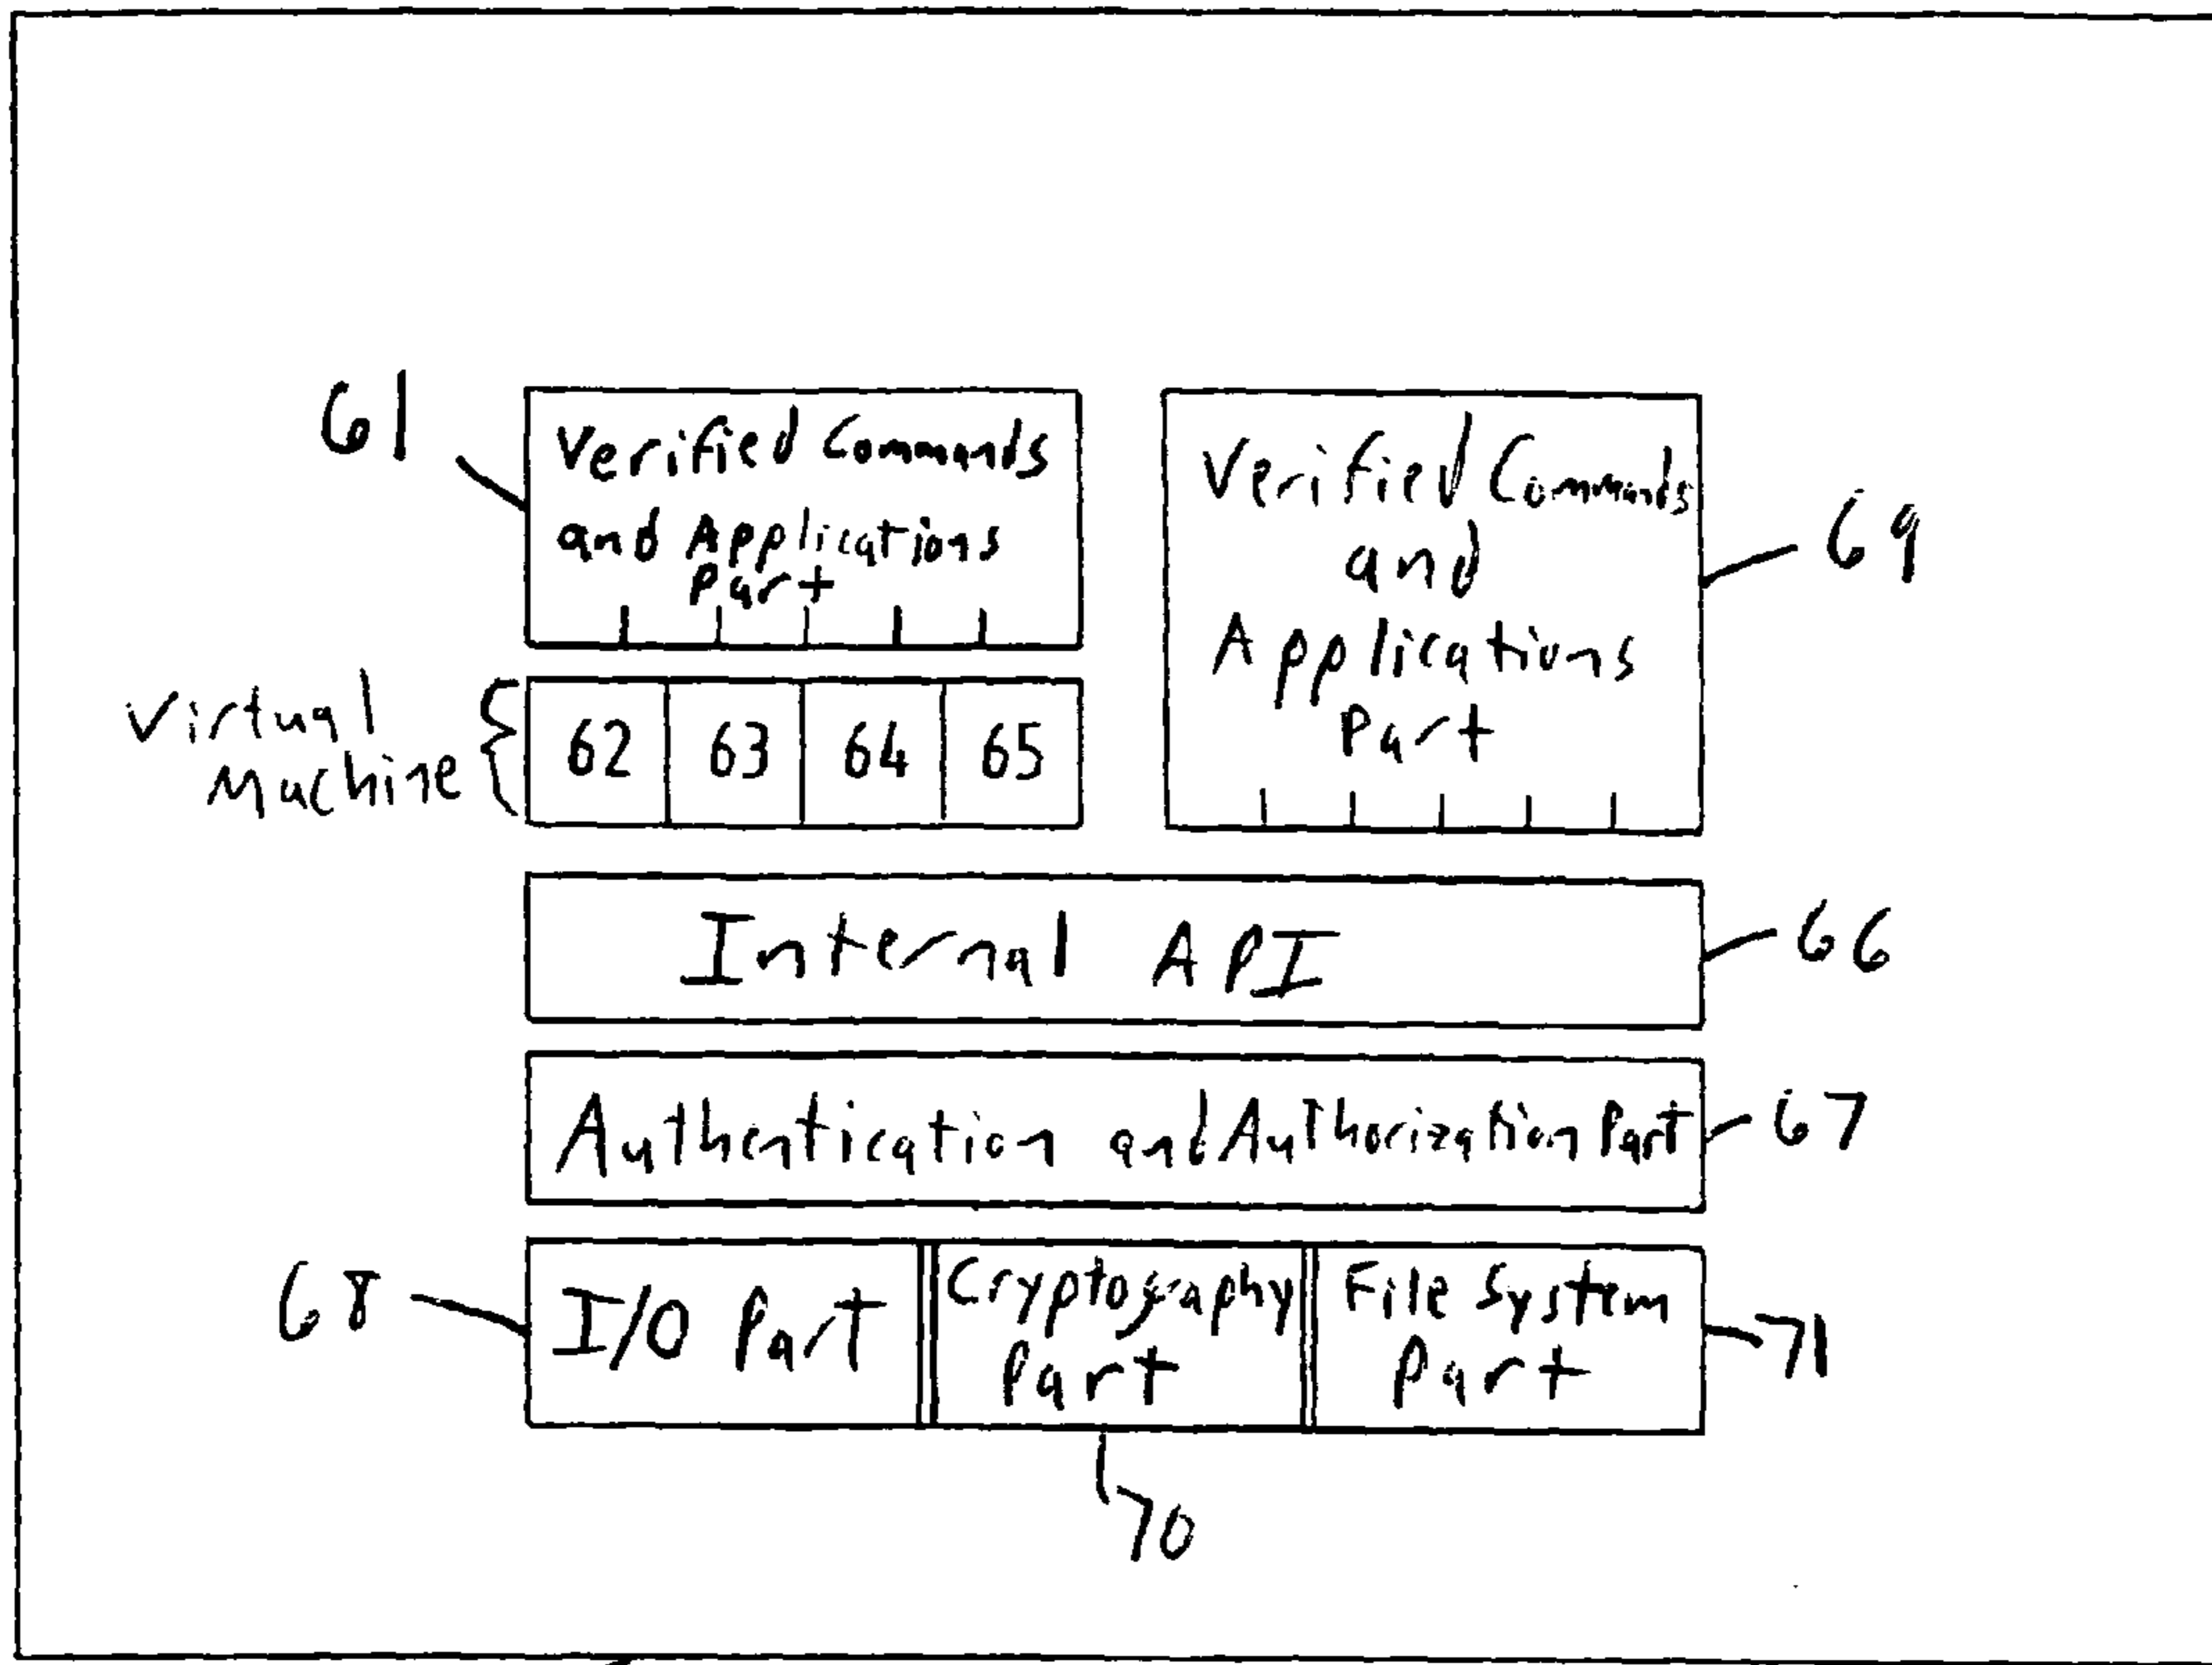 61
Verified Commands
and Applications
Part
Verified Commands
and
Applications
Part
69
Virtual
Machine
62 63 64 65
Internal API
66
Authentication and Authorization Part
67
68
I/O Part
Cryptography
Part
File System
Part
71
70